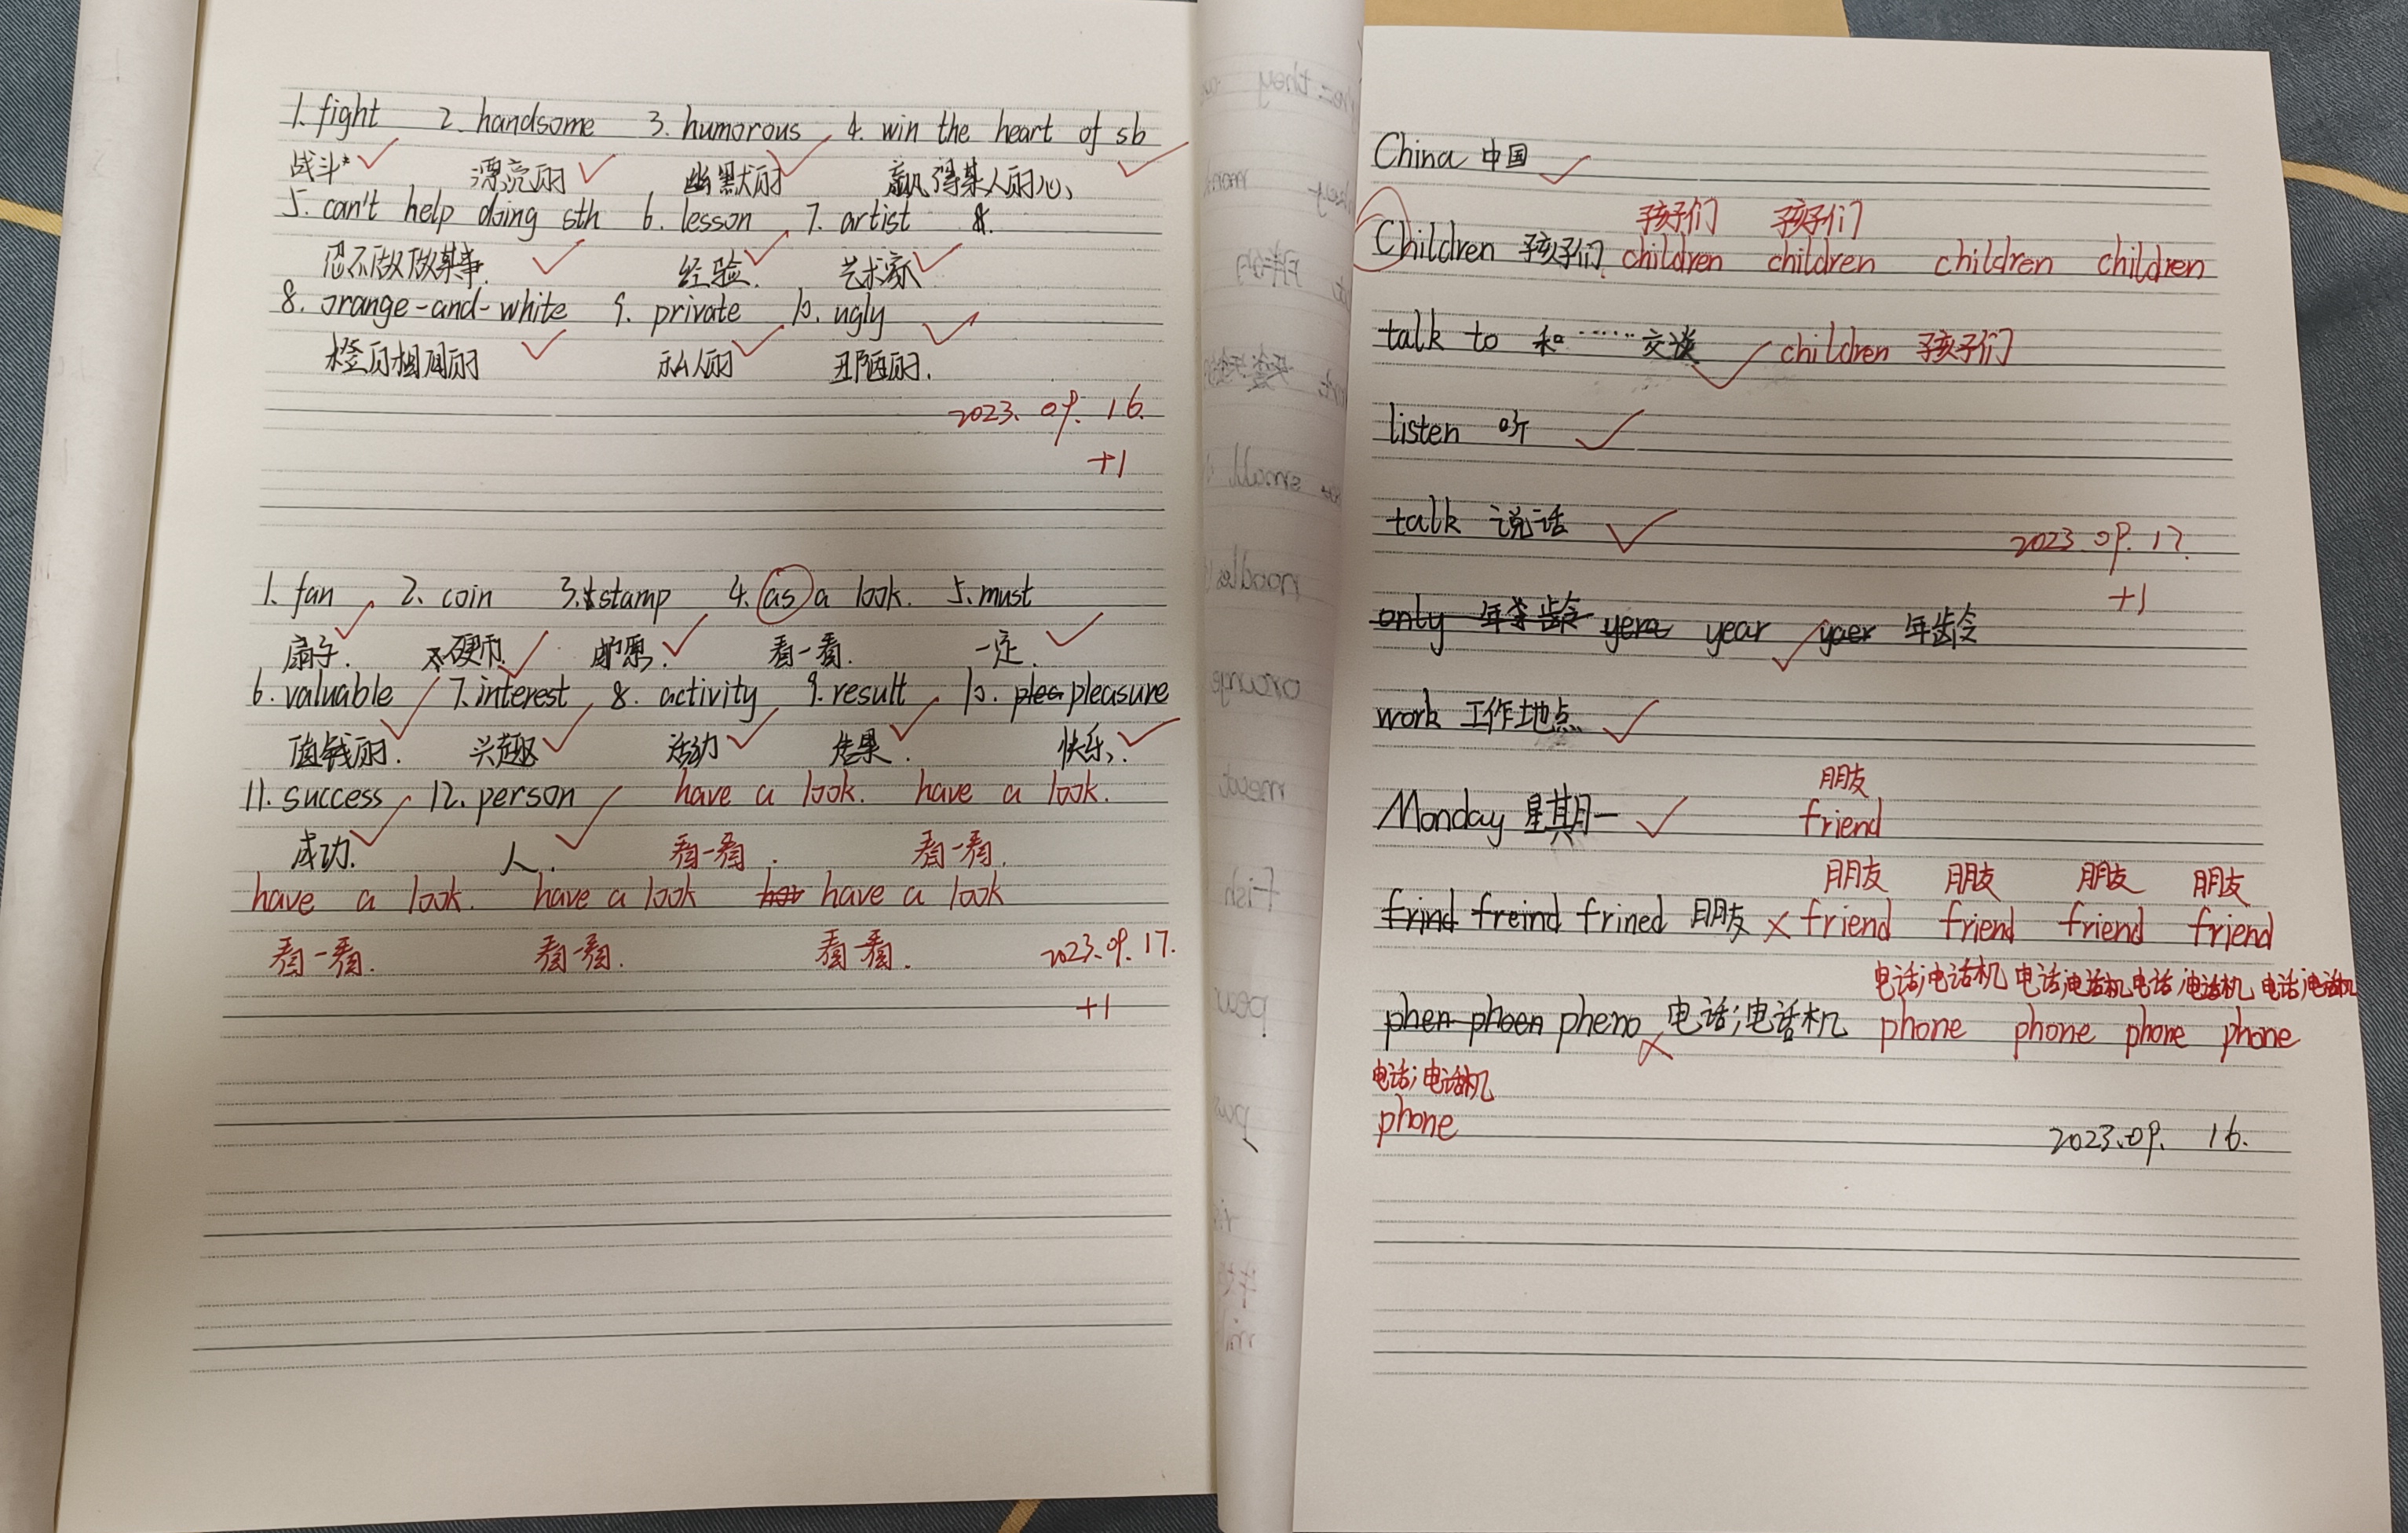 1. fight 2. handsome 3. humorous 4. win the heart of sb
战斗 漂亮的 幽默的 赢得某人的心
5. can't help doing sth 6. lesson 7. artist
忍不做做某事. 经验. 艺术家
8. orange-and-white 9. private 10. ugly
橙白相间的 私人的 丑陋的.
2023. 09. 16.
+1
1. fan 2. coin 3. stamp 4. as a look. 5. must
扇子. 硬币. 邮票. 看一看. 一定.
6. valuable 7. interest 8. activity 9. result 10. plea pleasure
值钱的. 兴趣 活动 结果. 快乐.
11. success 12. person have a look. have a look.
成功. 人. 看一看. 看一看.
have a look. have a look have a look
看一看. 看一看. 看一看.
2023.09.17.
+1
China 中国
孩子们 孩子们
Children 孩子们. children children children children
talk to 和……交谈 children 孩子们
listen 听
talk 说话
2023.09.17.
+1
only 年龄 yera year yaer 年龄
work 工作地点
朋友
Monday 星期一 friend
朋友 朋友 朋友 朋友
frind freind frined 朋友 friend friend friend friend
电话;电话机 电话;电话机 电话;电话机 电话;电话机
phen phoen pheno 电话;电话机 phone phone phone phone
电话;电话机
phone
2023.09. 16.